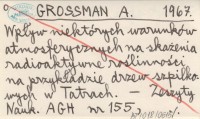 GROSSMAN A. 1967.
Wpływ niektórych warunków
atmosferycznych na skażenia
radioaktywne roślinności
na przykładzie drzew szpilko-
wych w Tatrach. – Zeszyty
Nauk. AGH nr 155,